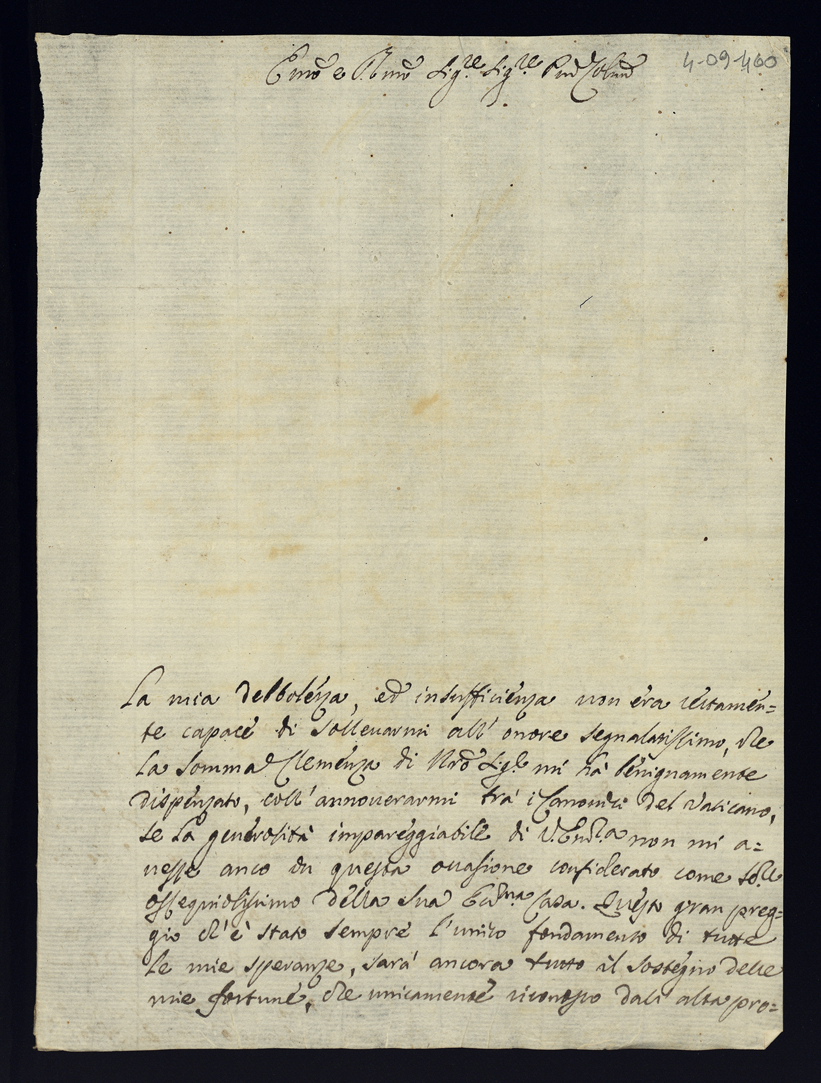 Emo e Rmo Sigre Sigre Pnē Colmō
4-09-460
La mia debolezza, ed insufficienza non era certamen=
te capace di sollevarmi all' onore segnalatissimo, che
la somma Clemenza di Nrō Sigre mi hà benignamente
dispenzato, coll' annoverarmi trà i Canonici del Vaticano,
se la generosità impareggiabile di V. Emza non mi a=
vesse anco in questa occasione considerato come
ossequiosissimo della sua Eccma Casa. Questo gran preg=
gio ch' è stato sempre l'unico fondamento di tutte
le mie speranze, sarà ancora tutto il sostegno delle
mie fortune, che unicamente riconosco dall' alta pro=